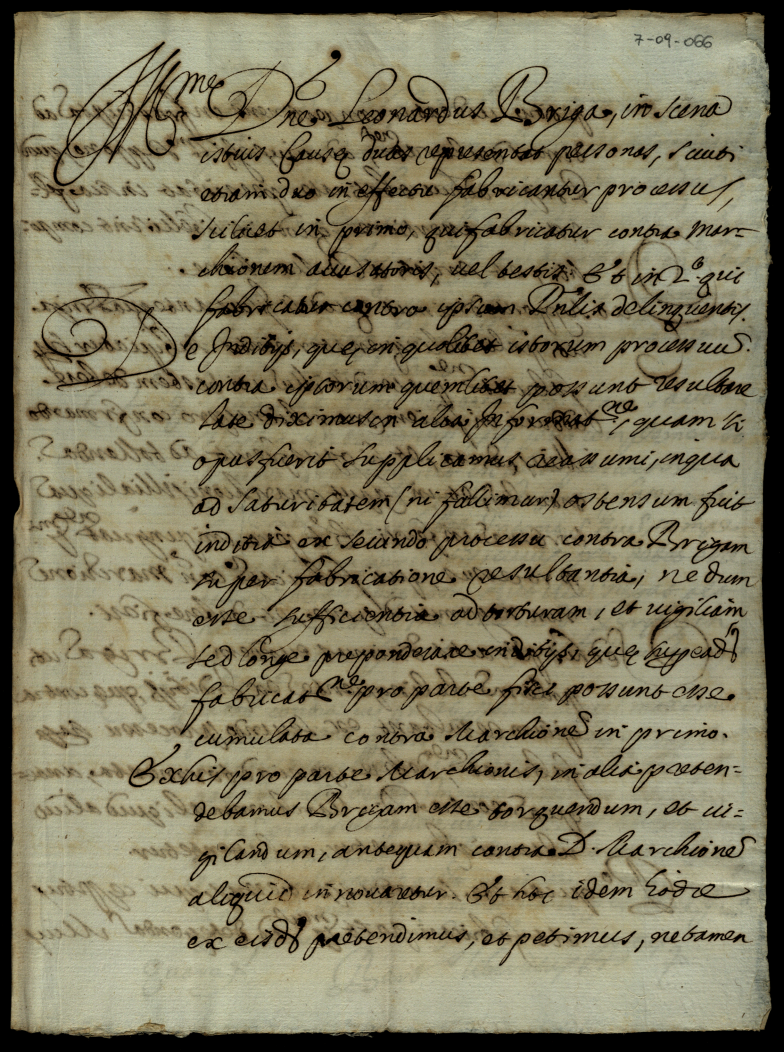 7-09-066
Ill.me Dne Leonardus Briga, in scena
istius Causæ duas representat personas, sicuti
etiam duo in effectu fabricantur processus,
scilicet in primo, qui fabricatur contra Mar=
chionem accusatoris, vel testis. Et in 2.º qui
fabricatur contra ipsum D'nlis delinquentis.
De Inditijs, quę, in quolibet istorum processuu'
contra ipsorum quemlibet possunt resultare
late diximus in alia Informat.ne, quam si
opus fuerit supplicamus reassumi, in qua
ad saturitatem (ni fallimur) ostensum fuit
inditia ex secundo processu contra Brigam
super fabricatione resultantia, nedum
esse sufficientia ad torturam, et vigiliam
sed longe preponderare inditijs, quę
fabricat.ne pro parte fisci possunt esse
cumulata contra Marchione' in primo.
Ex his pro parte Marchionis, in alia preten=
debamus Brigam esse torquendum, et vi=
gilandum, antequam contra D. Marchione'
aliquid innovaretur. Et hoc idem hodie
ex eisd' pretendimus, et petimus, ne tamen